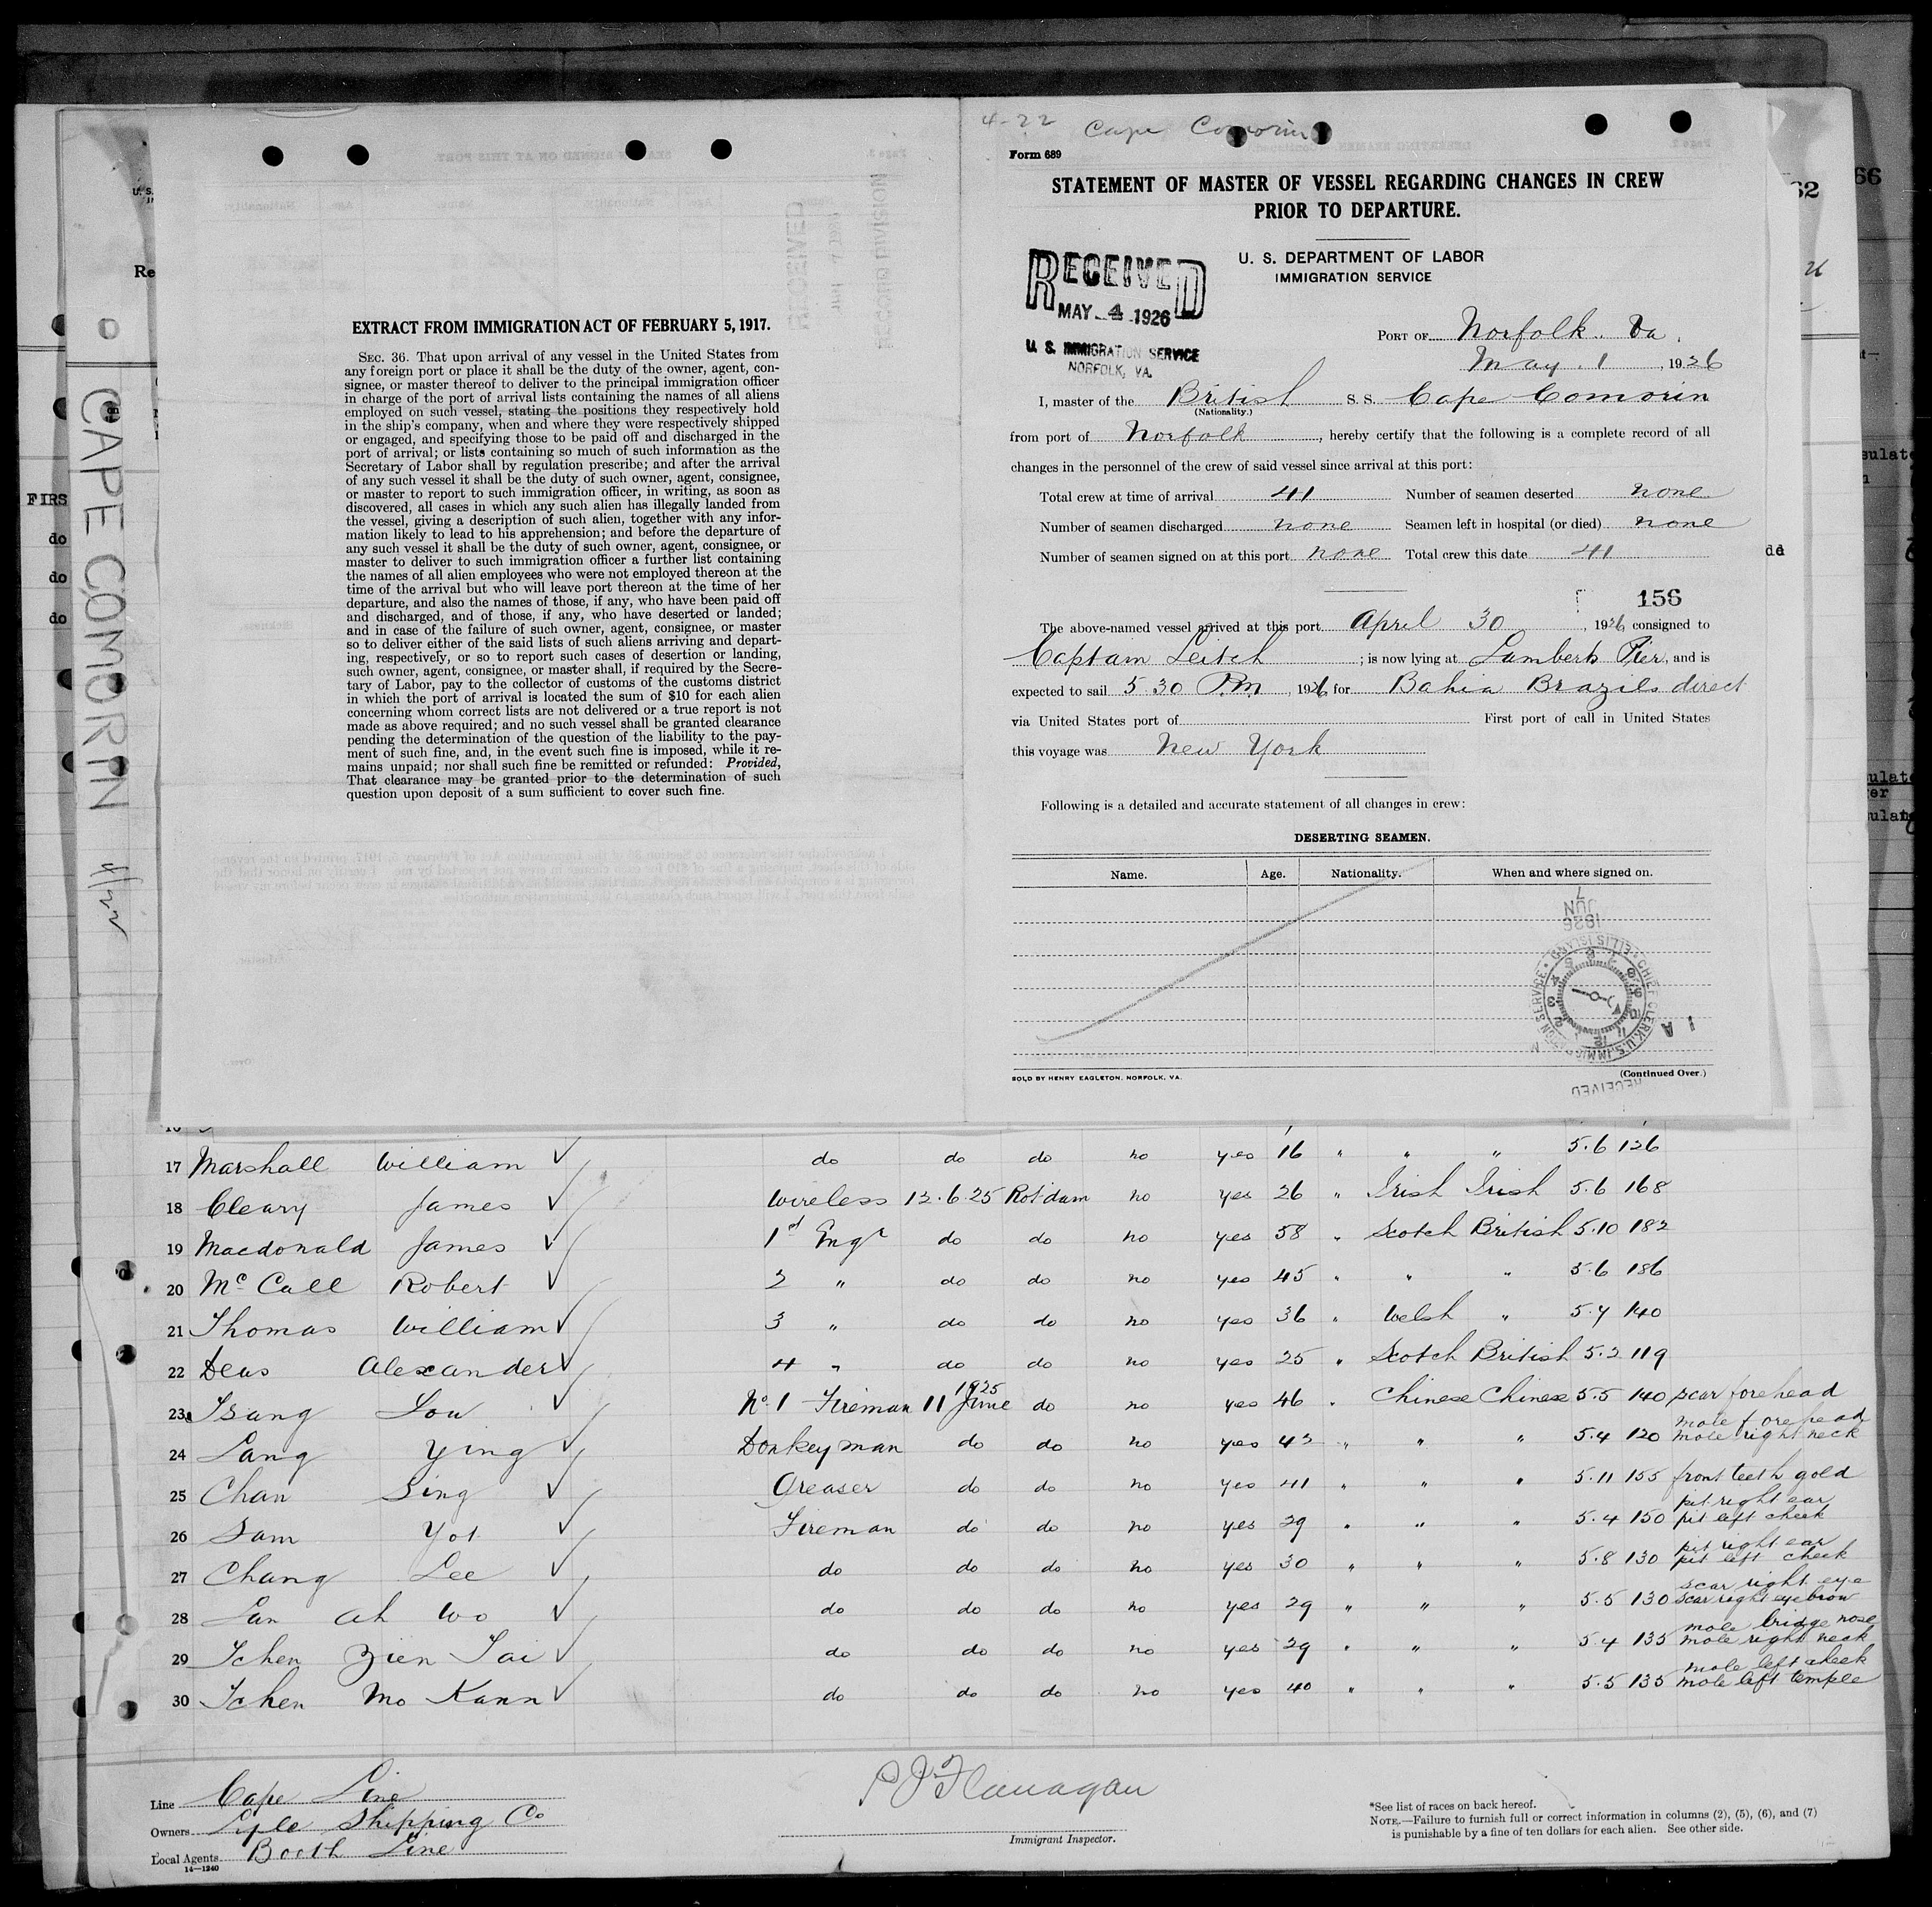 CAPE COMORIN 4/22
EXTRACT FROM IMMIGRATION ACT OF FEBRUARY 5, 1917.
SEC. 36. That upon arrival of any vessel in the United States from
any foreign port or place it shall be the duty of the owner, agent, con-
signee, or master thereof to deliver to the principal immigration officer
in charge of the port of arrival lists containing the names of all aliens
employed on such vessel, stating the positions they respectively hold
in the ship's company, when and where they were respectively shipped
or engaged, and specifying those to be paid off and discharged in the
port of arrival; or lists containing so much of such information as the
Secretary of Labor shall by regulation prescribe; and after the arrival
of any such vessel it shall be the duty of such owner, agent, consignee,
or master to report to such immigration officer, in writing, as soon as
discovered, all cases in which any such alien has illegally landed from
the vessel, giving a description of such alien, together with any infor-
mation likely to lead to his apprehension; and before the departure of
any such vessel it shall be the duty of such owner, agent, consignee, or
master to deliver to such immigration officer a further list containing
the names of all alien employees who were not employed thereon at the
time of the arrival but who will leave port thereon at the time of her
departure, and also the names of those, if any, who have been paid off
and discharged, and of those, if any, who have deserted or landed;
and in case of the failure of such owner, agent, consignee, or master
so to deliver either of the said lists of such aliens arriving and depart-
ing, respectively, or so to report such cases of desertion or landing,
such owner, agent, consignee, or master shall, if required by the Secre-
tary of Labor, pay to the collector of customs of the customs district
in which the port of arrival is located the sum of $10 for each alien
concerning whom correct lists are not delivered or a true report is not
made as above required; and no such vessel shall be granted clearance
pending the determination of the question of the liability to the pay-
ment of such fine, and, in the event such fine is imposed, while it re-
mains unpaid; nor shall such fine be remitted or refunded: Provided,
That clearance may be granted prior to the determination of such
question upon deposit of a sum sufficient to cover such fine.
4-22 Cape Comorin
Form 689
STATEMENT OF MASTER OF VESSEL REGARDING CHANGES IN CREW
PRIOR TO DEPARTURE.
U. S. DEPARTMENT OF LABOR
IMMIGRATION SERVICE
RECEIVED
MAY 4 1926
U. S. IMMIGRATION SERVICE
NORFOLK, VA.
PORT OF Norfolk. Va.
May 1, 1926
I, master of the British S. S. Cape Comorin
(Nationality.)
from port of Norfolk, hereby certify that the following is a complete record of all
changes in the personnel of the crew of said vessel since arrival at this port:
Total crew at time of arrival 41 Number of seamen deserted none
Number of seamen discharged none Seamen left in hospital (or died) none
Number of seamen signed on at this port none Total crew this date 41
156
The above-named vessel arrived at this port April 30, 1926 consigned to
Captam Leitch; is now lying at Lamberts Pier, and is
expected to sail 5.30 P.M, 1926 for Bahia Brazils direct
via United States port of First port of call in United States
this voyage was New York
Following is a detailed and accurate statement of all changes in crew:
DESERTING SEAMEN.
Name. Age. Nationality. When and where signed on.
7
JUN
1926
CHIEF CLERK, U.S. IMMIGRATION SERVICE ELLIS ISLAND
RECEIVED
SOLD BY HENRY EAGLETON, NORFOLK, VA.
(Continued Over.)
17 Marshall William do do do no yes 16 " " " 5.6 126
18 Cleary James Wireless 12.6.25 Rot'dam no yes 26 " Irish Irish 5.6 168
19 Macdonald James 1st Engr do do no yes 58 " Scotch British 5.10 182
20 McCall Robert 2 " do do no yes 45 " " " 5.6 186
21 Thomas William 3 " do do no yes 36 " Welsh " 5.7 140
22 Deas Alexander 4 " do do no yes 25 " Scotch British 5.2 119
23 Tsang Lou No 1 Fireman 11 June 1925 do no yes 46 " Chinese Chinese 5.5 140 scar forehead
24 Lang Ying Donkeyman do do no yes 42 " " " 5.4 120 mole forehead mole right neck
25 Chan Sing Greaser do do no yes 41 " " " 5.11 155 front teeth gold
26 Sam Yot Fireman do do no yes 29 " " " 5.4 150 pit right ear pit left cheek
27 Chang Lee do do do no yes 30 " " " 5.8 130 pit right ear pit left cheek
28 Lan Ah Wo do do do no yes 29 " " " 5.5 130 scar right eye scar right eyebrow
29 Tchen Zien Tai do do do no yes 29 " " " 5.4 135 mole bridge nose mole right neck
30 Tchen Mo Kann do do do no yes 40 " " " 5.5 135 mole left cheek mole left temple
Line Cape Line
Owners Lyle Shipping Co
Local Agents Booth Line
14—1240
P J Flanagan
Immigrant Inspector.
*See list of races on back hereof.
NOTE.—Failure to furnish full or correct information in columns (2), (5), (6), and (7)
is punishable by a fine of ten dollars for each alien. See other side.